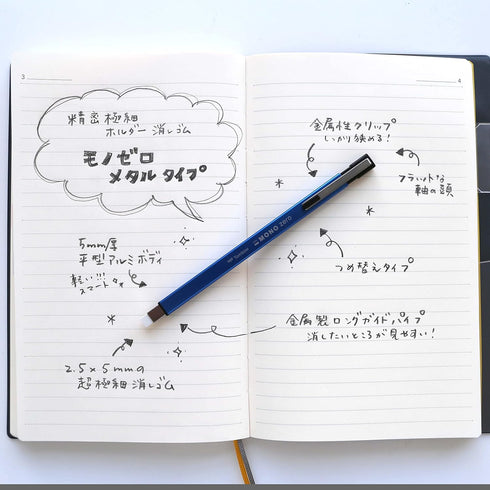 3
精密極細
ホルダー消しゴム
モノゼロ
メタルタイプ
5mm厚
平型アルミボディ
軽い!!!
スマート
2.5×5mmの
超極細消しゴム
4
金属性クリップ
しっかり挟める!
フラットな
軸の頭
つめ替えタイプ
金属製ロングガイドパイプ
消したいところが見やすい!
Tombow MONO zero